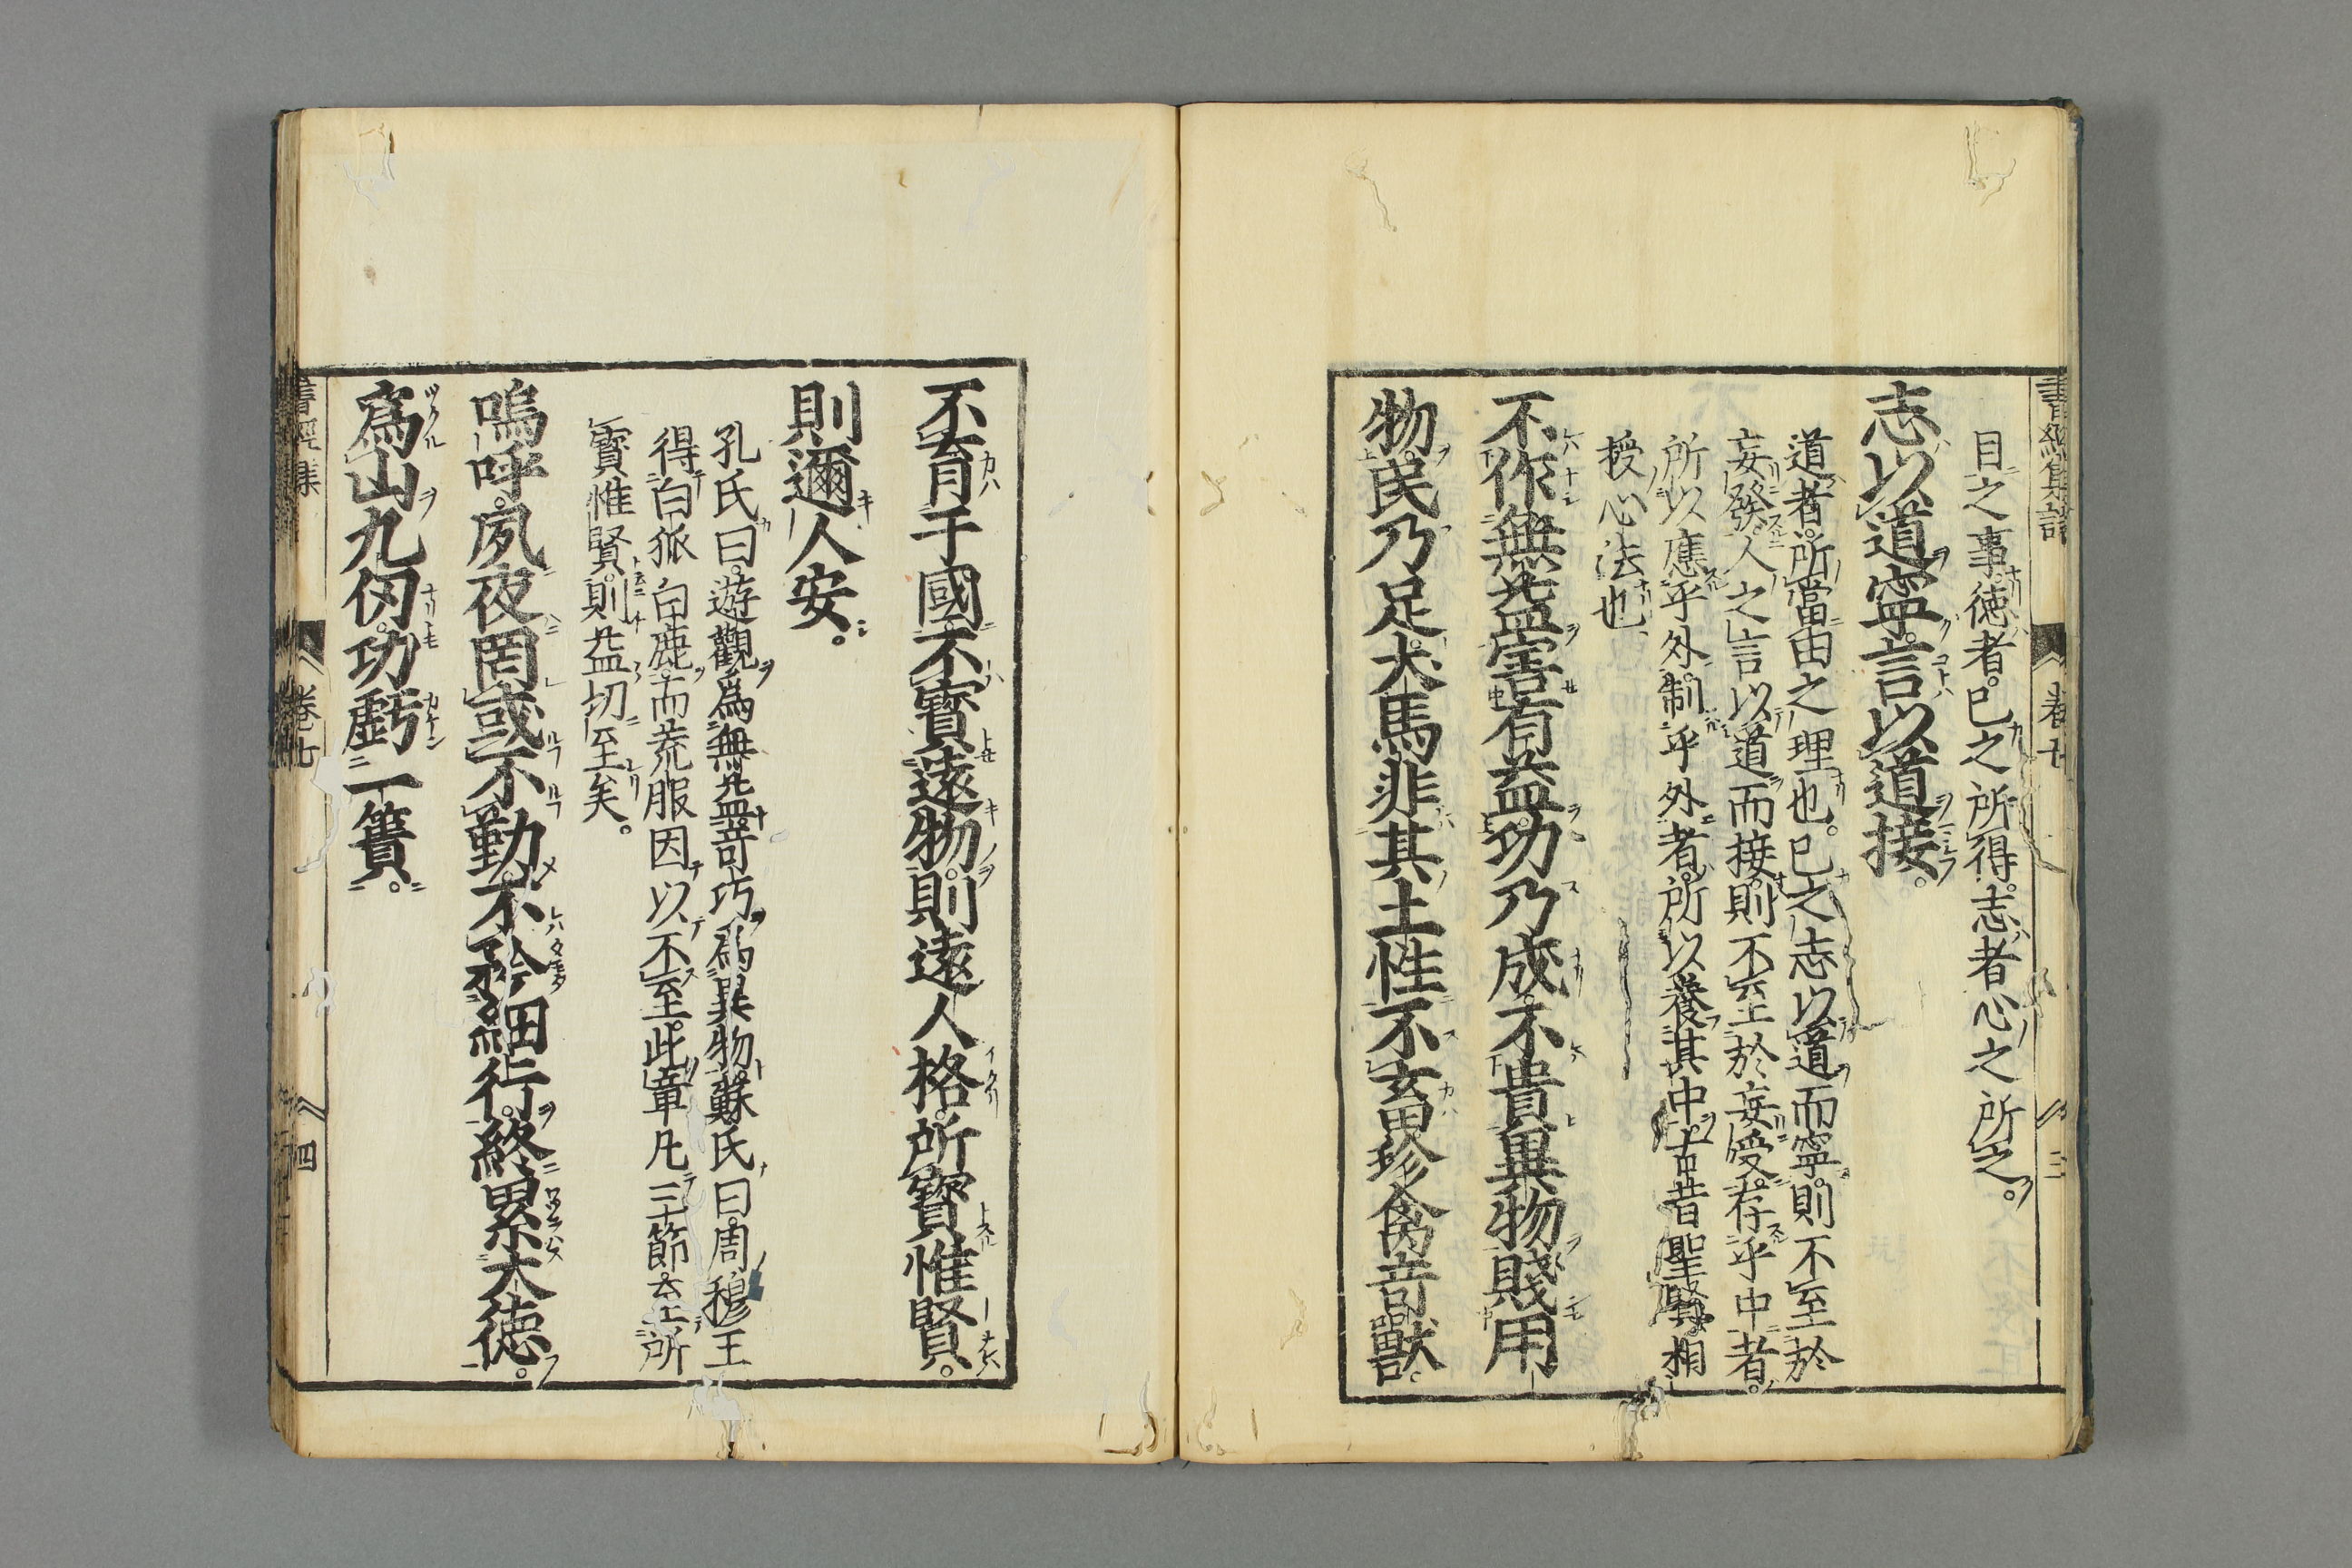 書經集註 卷七 三
目之事。德者。己之所得。志者心之所之。
志以道寧。言以道接。
道者。所當由之理也。己之志以道而寧。則不至於
妄發。人之言以道而接。則不至於妄受。存乎中者。
所以應乎外。制乎外者。所以養其中。古昔聖賢。相
授心法也。
不作無益害有益。功乃成。不貴異物賤用
物。民乃足。犬馬非其土性不畜。珍禽奇獸。
不育于國。不寶遠物。則遠人格。所寶惟賢。
則邇人安。
孔氏曰。遊觀為無益。奇巧為異物。蘇氏曰。周穆王
得白狐白鹿。而荒服因以不至。此章凡三節。至所
寶惟賢。則益切至矣。
嗚呼。夙夜罔或不勤。不矜細行。終累大德。
為山九仞。功虧一簣。
書經集 卷七 四